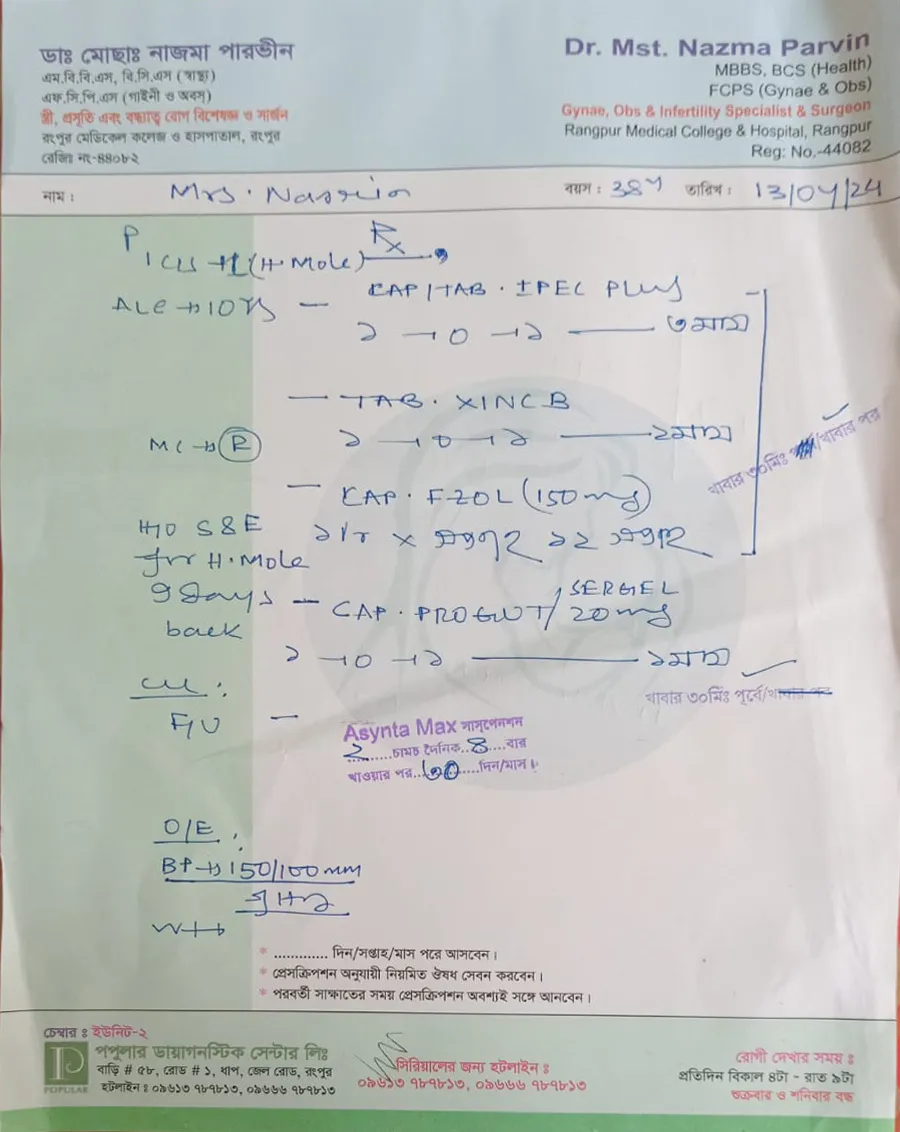 ডাঃ মোছাঃ নাজমা পারভীন
এম.বি.বি.এস, বি.সি.এস (স্বাস্থ্য)
এফ.সি.পি.এস (গাইনী ও অবস্)
স্ত্রী, প্রসূতি এবং বন্ধ্যাত্ব রোগ বিশেষজ্ঞ ও সার্জন
রংপুর মেডিকেল কলেজ ও হাসপাতাল, রংপুর
রেজিঃ নং-৪৪০৮২
Dr. Mst. Nazma Parvin
MBBS, BCS (Health)
FCPS (Gynae & Obs)
Gynae, Obs & Infertility Specialist & Surgeon
Rangpur Medical College & Hospital, Rangpur
Reg: No.-44082
নাম : Mrs. Nasrin বয়স : 38y তারিখ : 13/04/24
Rx
(H. Mole)
ALC → 10 yrs
- CAP/TAB. IPEC PLUS
১ → 0 → ১ — ৩ মাস
- TAB. XINC B
MC → (R) ১ → 0 → ১ — ২ মাস
খাবার ৩০মিঃ /খাবার পর
- CAP. FZOL (150 mg)
H/O S&E
for H. Mole
9 days
back
- CAP. PROGUT/SERGEL 20 mg
১ → 0 → ১ — ১ মাস
খাবার ৩০মিঃ পূর্বে/খাবার পর
F/U -
Asynta Max সাসপেনশন
২ চামচ দৈনিক..8...বার
খাওয়ার পর.......দিন/মাস।
O/E :
BP → 150/100 mm
of Hg
* ............. দিন/সপ্তাহ/মাস পরে আসবেন।
* প্রেসক্রিপশন অনুযায়ী নিয়মিত ঔষধ সেবন করবেন।
* পরবর্তী সাক্ষাতের সময় প্রেসক্রিপশন অবশ্যই সঙ্গে আনবেন।
চেম্বার ঃ ইউনিট-২
POPULAR
পপুলার ডায়াগনস্টিক সেন্টার লিঃ
বাড়ি # ৫৮, রোড # ১, ধাপ, জেল রোড, রংপুর
হটলাইন ঃ ০৯৬১৩ ৭৮৭৮১৩, ০৯৬৬৬ ৭৮৭৮১৩
সিরিয়ালের জন্য হটলাইন ঃ
০৯৬১৩ ৭৮৭৮১৩, ০৯৬৬৬ ৭৮৭৮১৩
রোগী দেখার সময় ঃ
প্রতিদিন বিকাল ৪টা - রাত ৯টা
শুক্রবার ও শনিবার বন্ধ